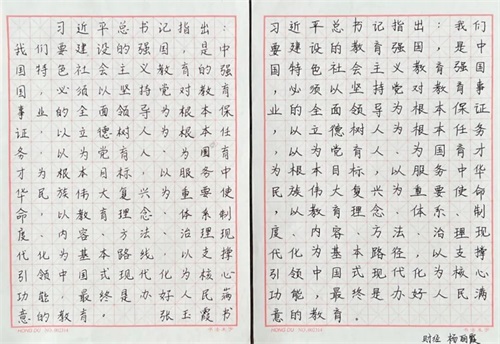 习近平总书记指出:
我们要建设的强国,是中
国特色社会主义教育的强
国,必须以坚持党对教育
事业的全面领导为根本保
证,以立德树人为根本任
务,以为党育人、为国育
才为根本目标,以服务中
华民族伟大复兴为重要使
命,以教育理念、体系制
度、内容、方法、治理现
代化为基本路线,以支撑
引领中国式现代化为核心
功能,最终是办好人民满
意的教育,张玉霞书
习近平总书记指出:我们
要建设的教育强国,是中
国特色社会主义教育强国
,必须以坚持党对教育事
业的全面领导为根本保证
,以立德树人为根本任务
,以为党育人、为国育才
为根本目标,以服务中华
民族伟大复兴为重要使命
,以教育理念、体系、制
度、内容、方法、治理现
代化为基本路径,以支撑
引领中国式现代化为核心
功能,最终是办好人民满
意的教育。
杨丽霞